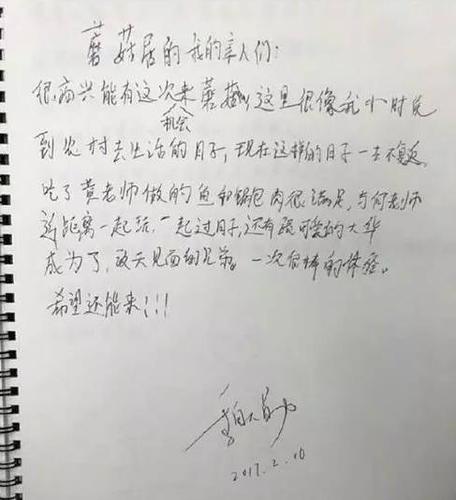 蘑菇屋的我的亲人们:
很高兴能有这次来蘑菇 这里很像我小时候
机会
到农村去生活的日子,现在这样的日子一去不复返
吃了黄老师做的鱼和锅包肉很满足,与何老师
近距离一起 一起过日子,还有跟可爱的大华
成为了, 天见面的兄弟。一次 棒的体验。
希望还能来!!!
2017.2.10